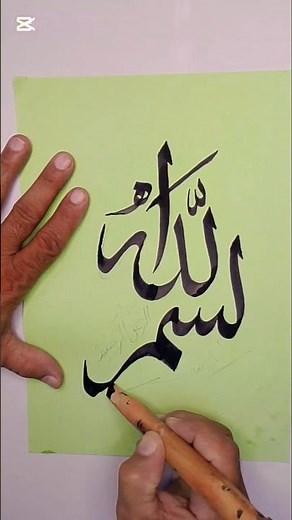 بسم
اللّهُ